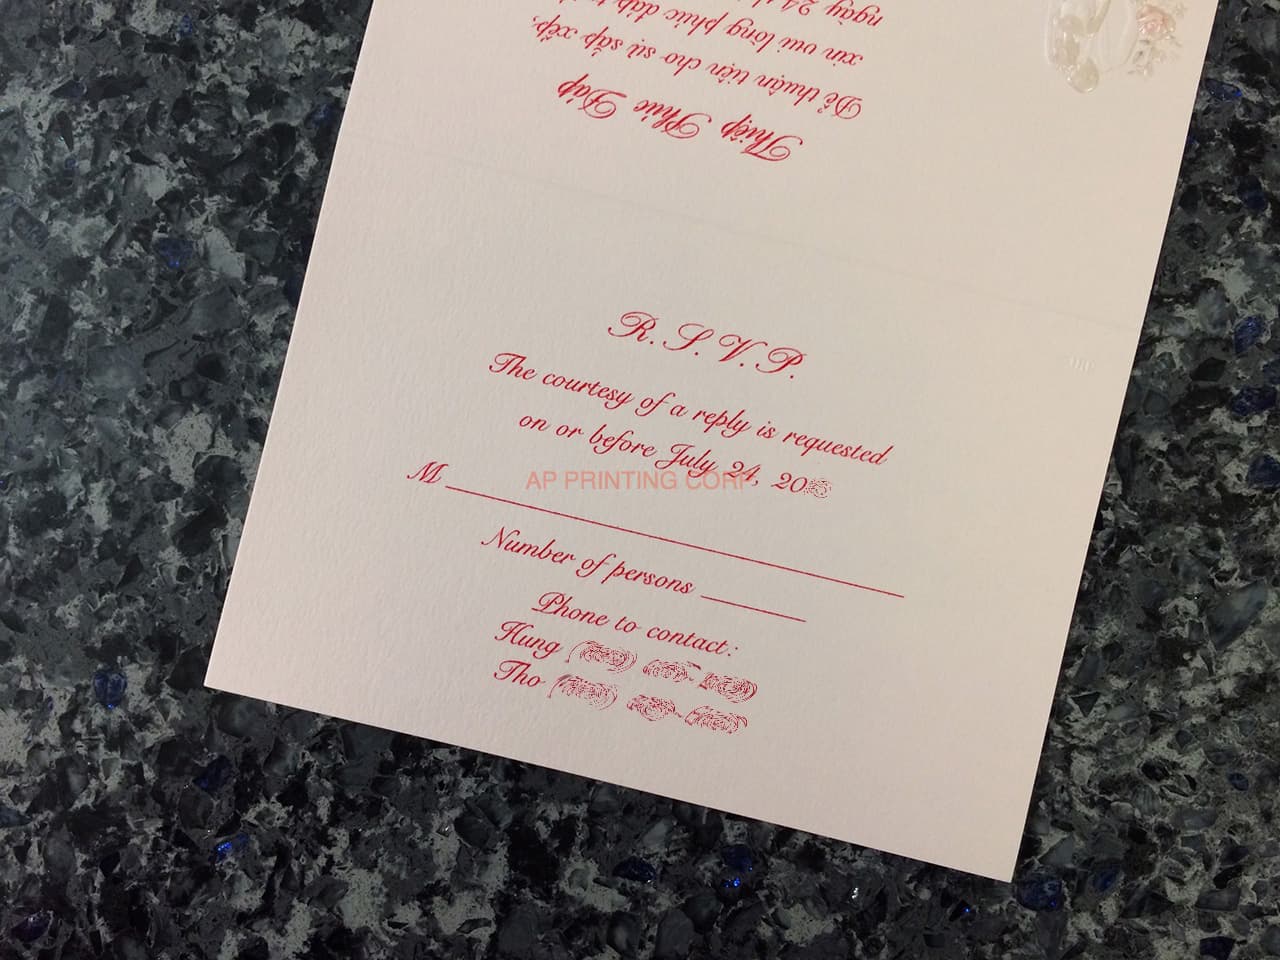 Thiệp Phúc Đáp
Để thuận tiện cho sự sắp xếp,
xin vui lòng phúc đáp
ngày 24
R.S.V.P.
The courtesy of a reply is requested
on or before July 24, 20
AP PRINTING CORP
M
Number of persons
Phone to contact:
Hung
Tho